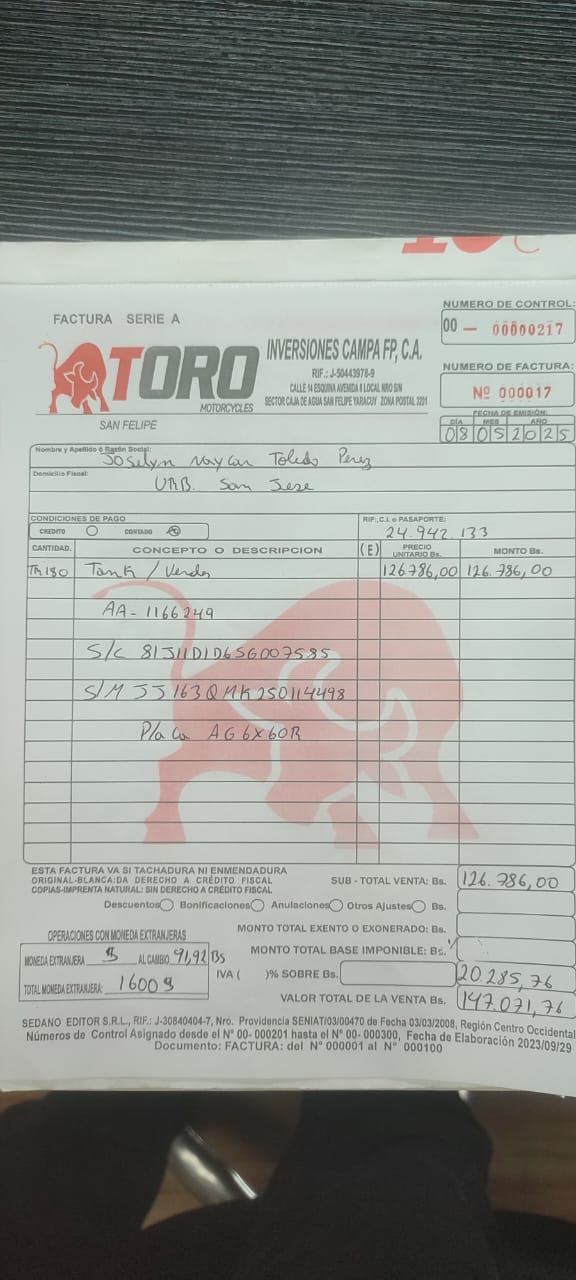 NUMERO DE CONTROL:
00 — 00000217
FACTURA SERIE A
TORO
MOTORCYCLES
SAN FELIPE
INVERSIONES CAMPA FP, C.A.
RIF.: J-50443978-9
CALLE 14 ESQUINA AVENIDA 8 LOCAL NRO S/N
SECTOR CAJA DE AGUA SAN FELIPE YARACUY ZONA POSTAL 3201
NUMERO DE FACTURA:
Nº 000017
FECHA DE EMISIÓN:
DÍA MES AÑO
08 05 2025
Nombre y Apellido ó Razón Social:
Joselyn Naycar Toledo Perez
Domicilio Fiscal:
URB. San Jose
CONDICIONES DE PAGO
CREDITO CONTADO
RIF:,C.I. o PASAPORTE:
24.942.133
CANTIDAD. CONCEPTO O DESCRIPCION (E) PRECIO UNITARIO Bs. MONTO Bs.
TR180 Tank / Verde 126786,00 126.786,00
AA-1166249
S/C
S/M
Placa AG6X60R
ESTA FACTURA VA SI TACHADURA NI ENMENDADURA
ORIGINAL-BLANCA:DA DERECHO A CRÉDITO FISCAL
COPIAS-IMPRENTA NATURAL: SIN DERECHO A CRÉDITO FISCAL
SUB - TOTAL VENTA: Bs. 126.786,00
Descuentos Bonificaciones Anulaciones Otros Ajustes Bs.
MONTO TOTAL EXENTO O EXONERADO: Bs.
OPERACIONES CON MONEDA EXTRANJERAS
MONTO TOTAL BASE IMPONIBLE: Bs.
MONEDA EXTRANJERA $ AL CAMBIO 91,92 Bs
IVA ( )% SOBRE Bs. 20.285,76
TOTAL MONEDA EXTRANJERA: 1600 $
VALOR TOTAL DE LA VENTA Bs. 147.071,76
SEDANO EDITOR S.R.L., RIF.: J-30840404-7, Nro. Providencia SENIAT/03/00470 de Fecha 03/03/2008, Región Centro Occidental
Números de Control Asignado desde el Nº 00- 000201 hasta el Nº 00- 000300, Fecha de Elaboración 2023/09/29
Documento: FACTURA: del Nº 000001 al Nº 000100